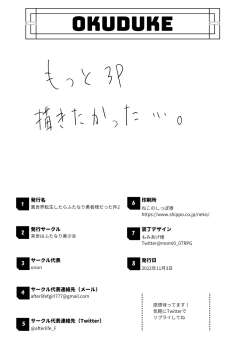 OKUDUKE
もっと3P
描きたかった…。
1 発行名
異世界転生したらふたなり勇者様だった件2
2 発行サークル
英世はふたなり展示会
3 サークル代表
sosan
4 サークル代表連絡先（メール）
5 サークル代表連絡先（Twitter）
@afterlife_F
6 印刷所
ねこのしっぽ様
https://www.shippo.co.jp/neko/
7 装丁デザイン
もみあげ様
8 発行日
2022年11月3日
感想待ってます！
気軽にTwitterで
リプライしてね